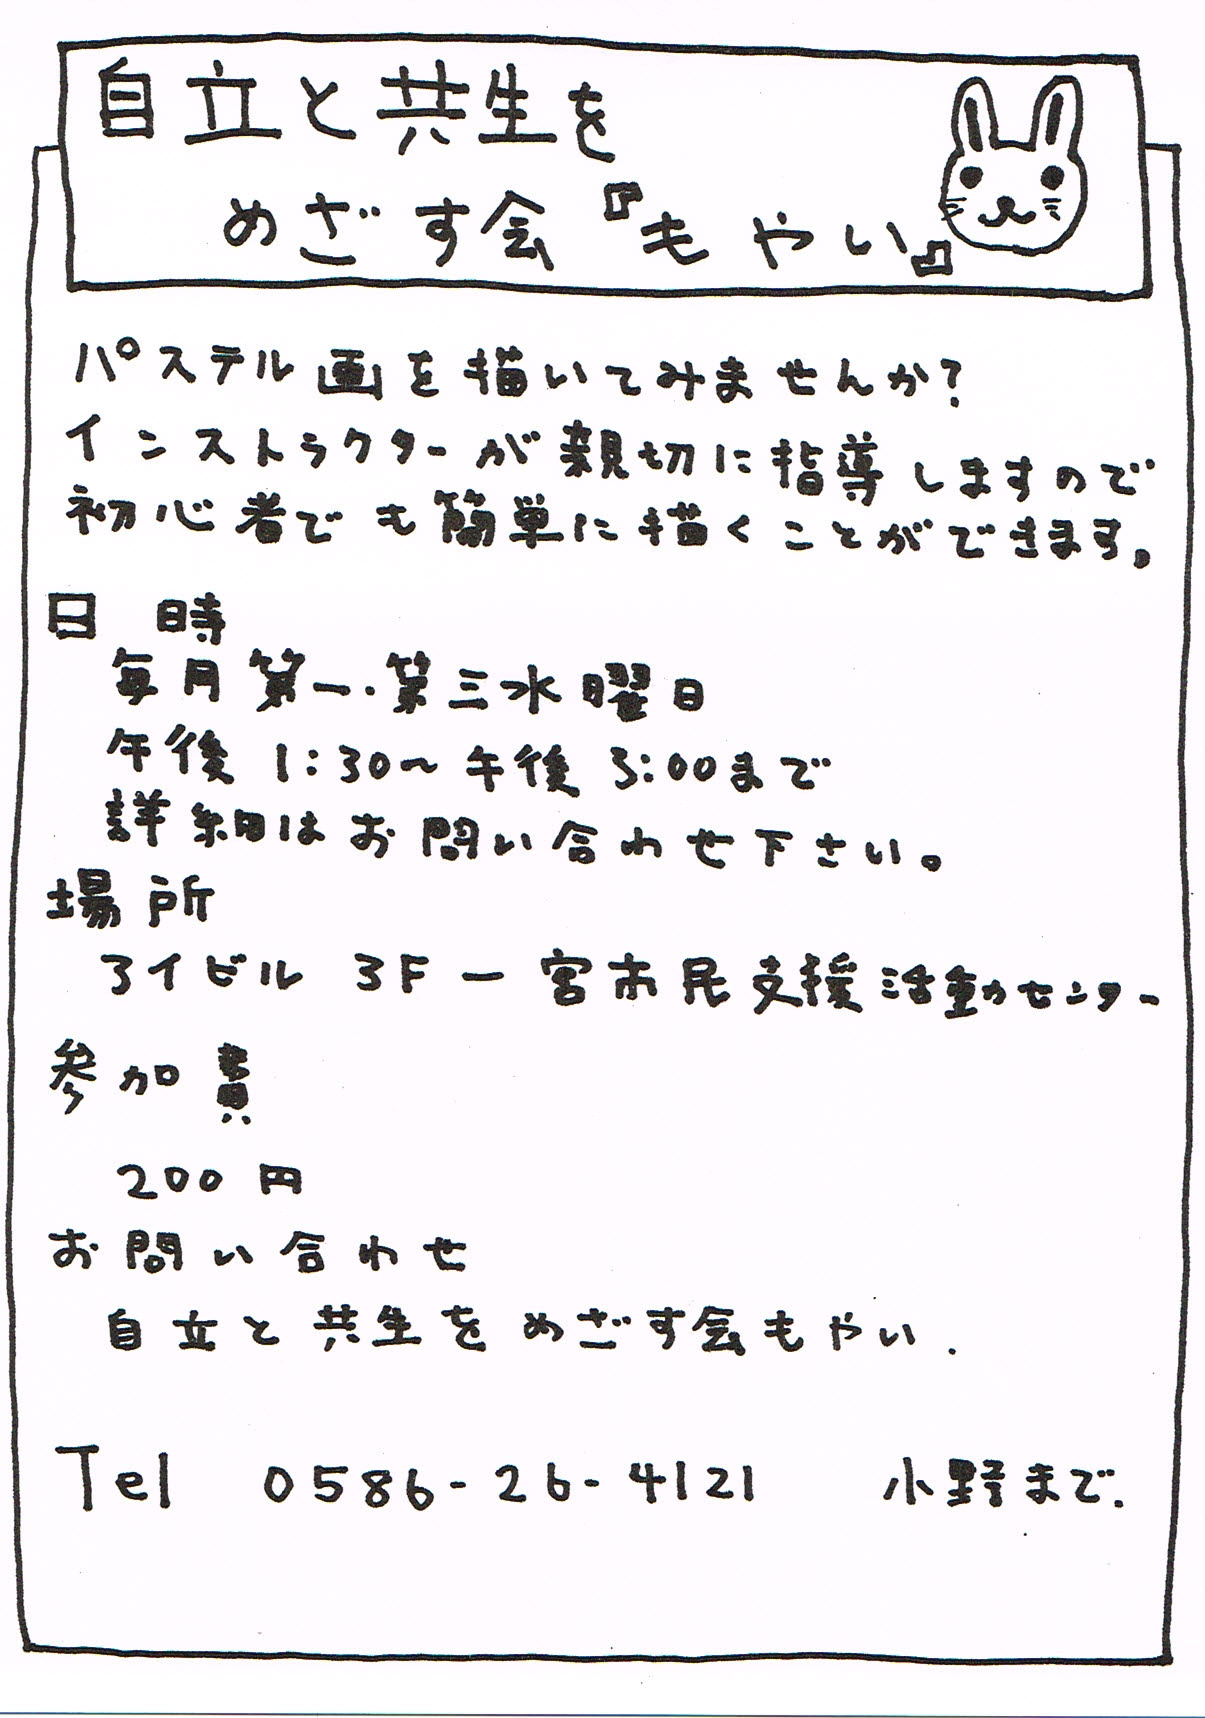 自立と共生を
めざす会『もやい』
パステル画を描いてみませんか?
インストラクターが親切に指導しますので
初心者でも簡単に描くことができます。
日 時
毎月第一・第三水曜日
午後 1:30〜午後 3:00まで
詳細はお問い合わせ下さい。
場所
アイビル 3F 一宮市民支援活動センター
参加費
200円
お問い合わせ
自立と共生をめざす会もやい.
Tel 0586-26-4121 小野まで.